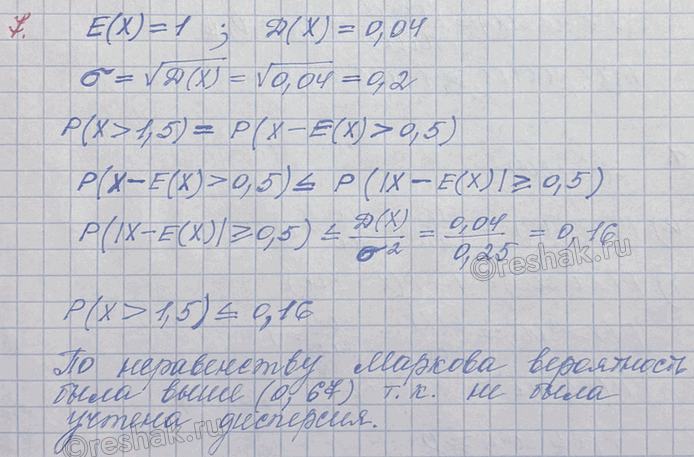 7. E(X) = 1 ; D(X) = 0,04
σ = √D(X) = √0,04 = 0,2
P(X > 1,5) = P(X – E(X) > 0,5)
P(X – E(X) > 0,5) ≤ P(|X – E(X)| ≥ 0,5)
P(|X – E(X)| ≥ 0,5) ≤ D(X)/σ² = 0,04/0,25 = 0,16
P(X > 1,5) ≤ 0,16
По неравенству Маркова вероятность
была выше (0,67) т.к. не была
учтена дисперсия.
©reshak.ru
©reshak.ru